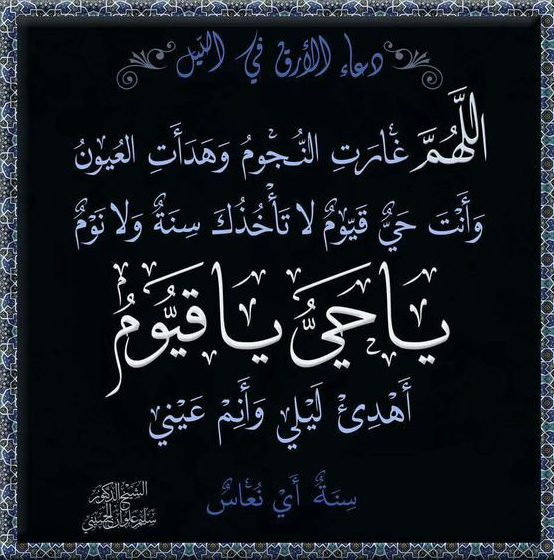 دعاء الأرق في الليل
اللَّهُمَّ غَارَتِ النُّجُومُ وَهَدَأَتِ العُيُونُ
وَأَنْتَ حَيٌّ قَيّوْمٌ لا تَأْخُذُكَ سِنَةٌ وَلا نَوْمٌ
يَا حَيُّ يَا قَيُّومُ
أَهْدِئْ لَيْلِي وَأَنِمْ عَيْنِي
سِنَةٌ أَيْ نُعَاسٌ
الشيخ الدكتور
سليم علوان الحسيني